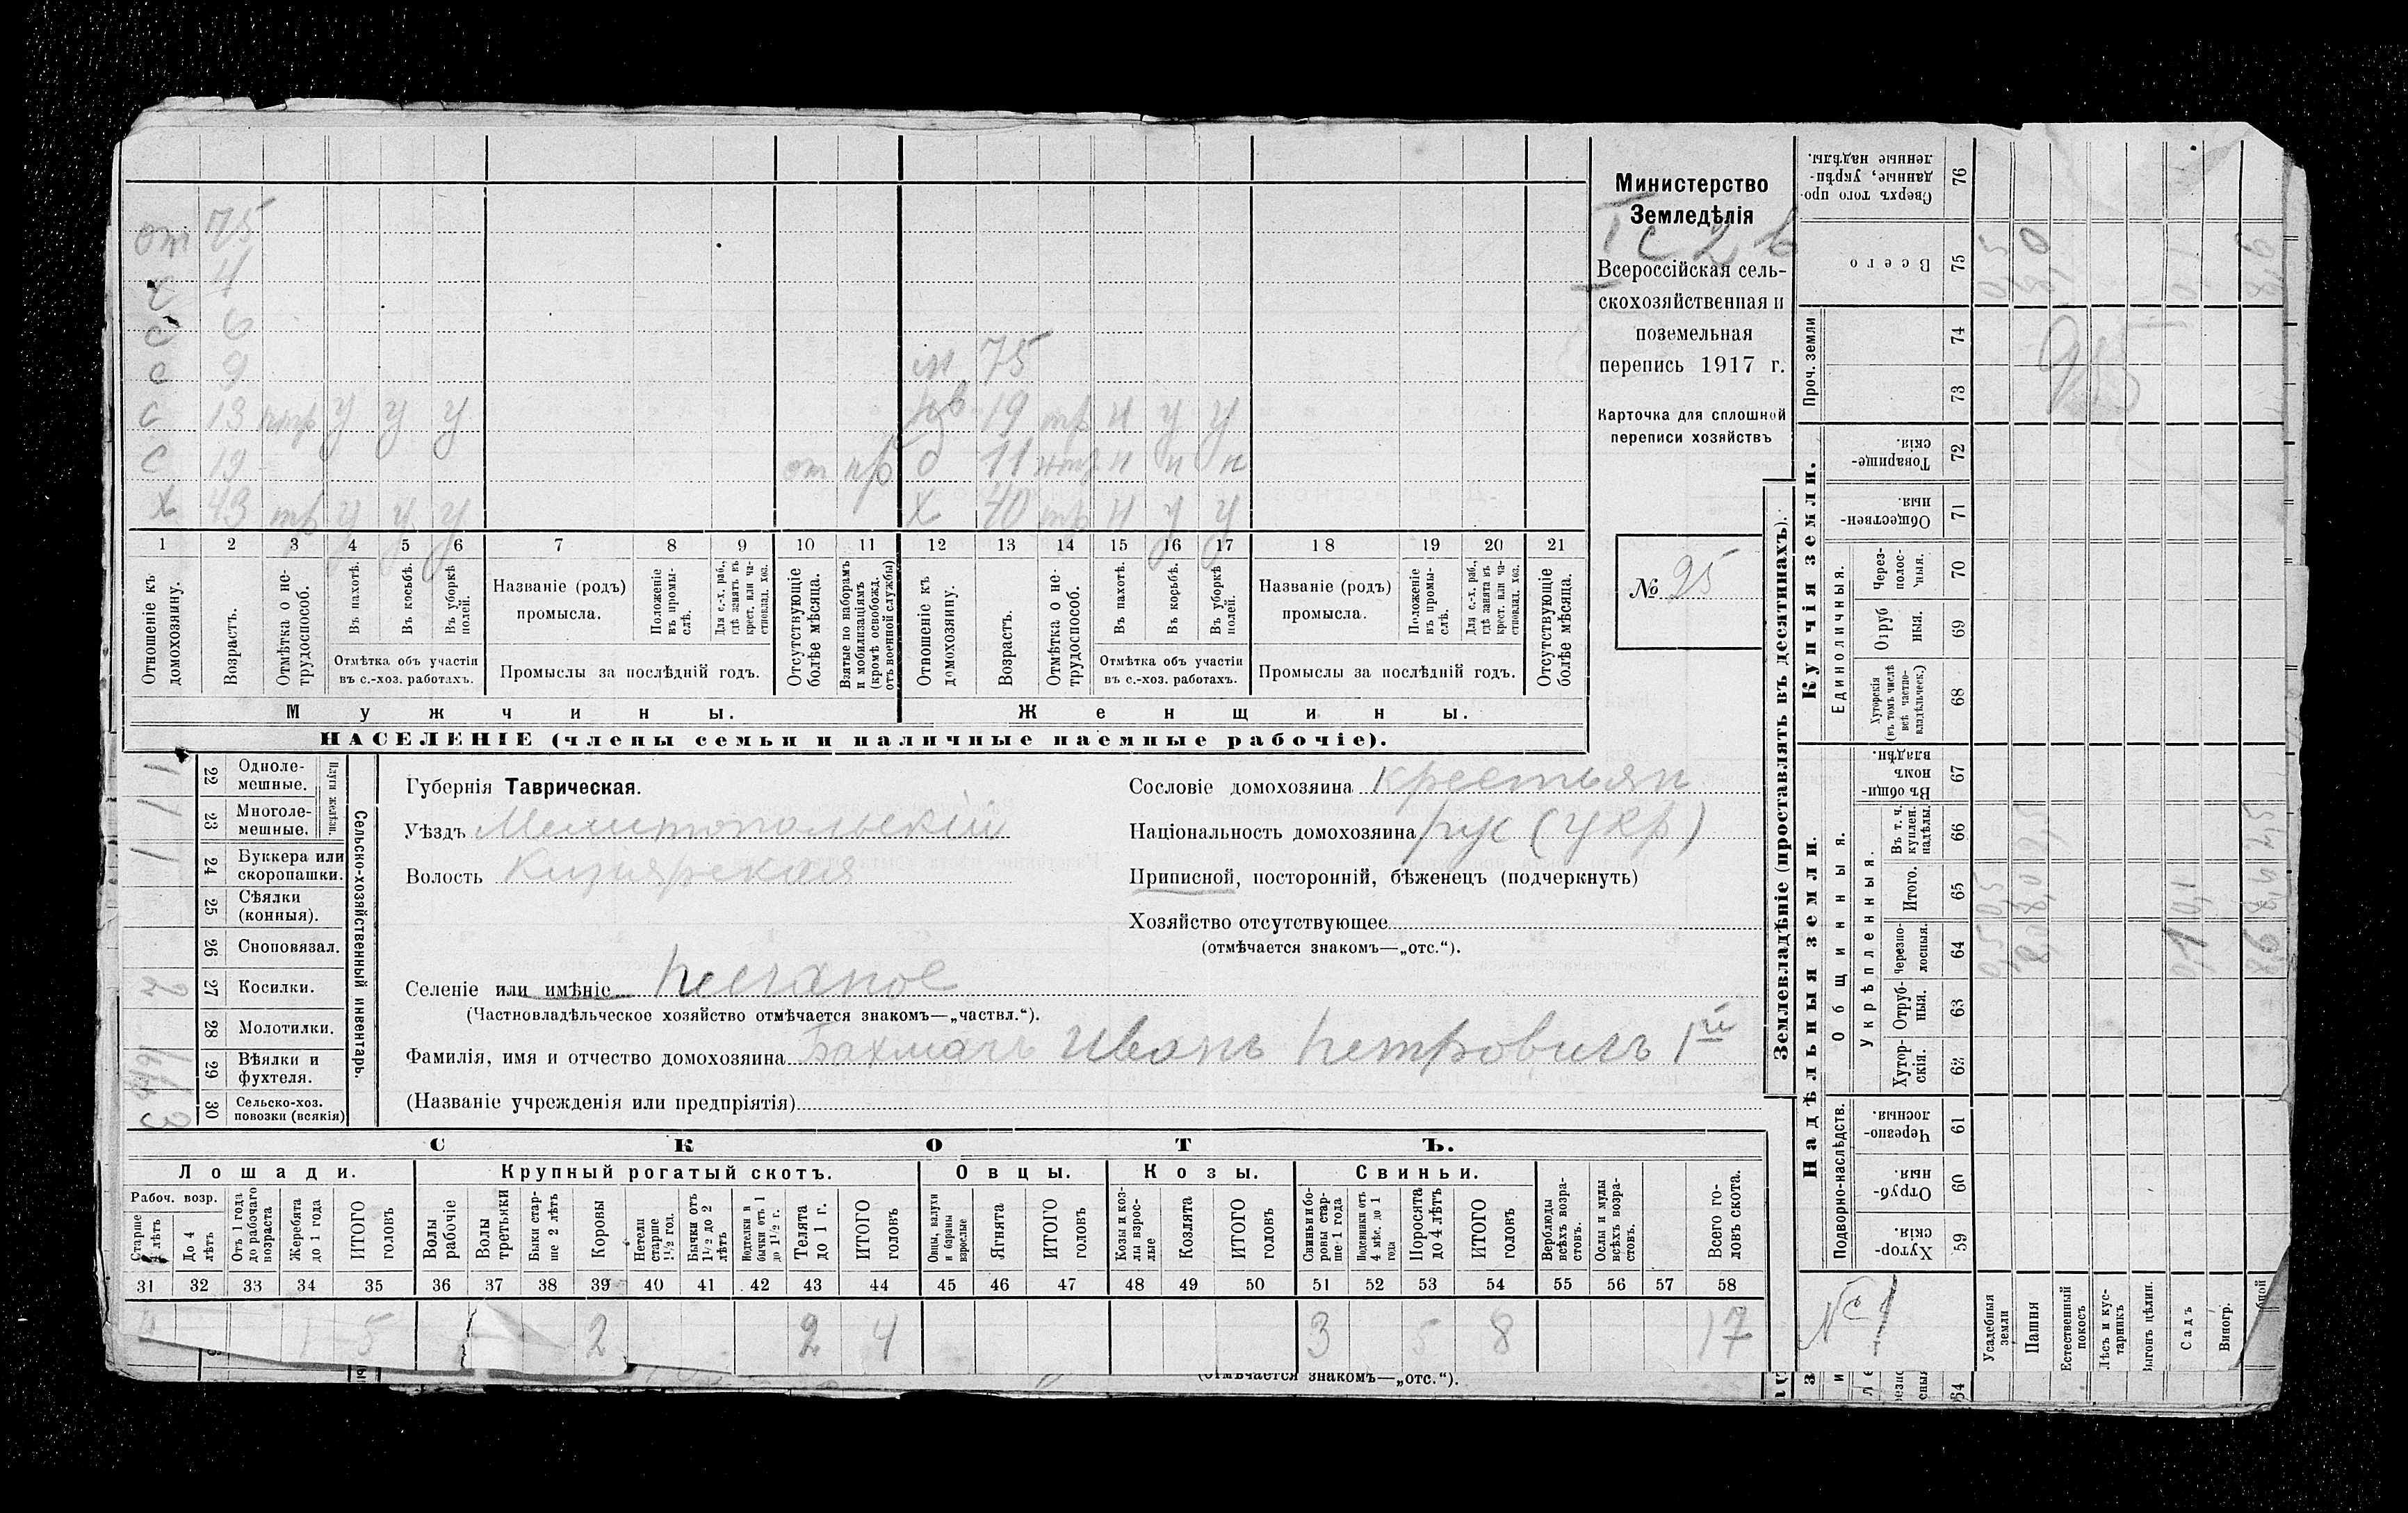 от 75
с 4
с 6
с 9
с 13 птр у у у
с 19 от пр
х 43 тр у у у
м 75
нв 19 тр н у у
д 11 нтр н н н
х 40 тр н у у
1 2 3 4 5 6 7 8 9 10 11 12 13 14 15 16 17 18 19 20 21
Отношеніе къ домохозяину.
Возрастъ.
Отмѣтка о нетрудоспособ.
Въ пахотѣ.
Въ косьбѣ.
Въ уборкѣ полей.
Отмѣтка объ участіи
въ с.-хоз. работахъ.
Названіе (родъ)
промысла.
Положеніе въ промыслѣ.
Для с.-х. раб., гдѣ занятъ въ крест. или частновлад. хоз.
Промыслы за послѣдній годъ.
Отсутствующіе болѣе мѣсяца.
Взятые по наборамъ и мобилизаціямъ (кромѣ освобожд. отъ военной службы)
Отношеніе къ домохозяину.
Возрастъ.
Отмѣтка о нетрудоспособ.
Въ пахотѣ.
Въ корьбѣ.
Въ уборкѣ полей.
Отмѣтка объ участіи
въ с.-хоз. работахъ.
Названіе (родъ)
промысла.
Положеніе въ промыслѣ.
Для с.-х. раб., гдѣ занята въ крест. или частновлад. хоз.
Промыслы за послѣдній годъ.
Отсутствующіе болѣе мѣсяца.
Мужчины.
Женщины.
НАСЕЛЕНІЕ (члены семьи и наличные наемные рабочіе).
Министерство
Земледѣлія
Всероссійская сель-
скохозяйственная и
поземельная
перепись 1917 г.
Карточка для сплошной
переписи хозяйствъ
№ 95
22 Одноле-
мешные. 1
23 Многоле-
мешные. 1
Плуги желѣзн.
24 Буккера или
скоропашки. 1
25 Сѣялки
(конныя).
26 Сноповязал.
27 Косилки.
28 Молотилки.
29 Вѣялки и
фухтеля.
30 Сельско-хоз.
повозки (всякія) 3
Сельско-хозяйственный инвентарь.
Губернія Таврическая.
Уѣздъ Мелитопольскій
Волость Кизіярская
Селеніе или имѣніе Песчаное
(Частновладѣльческое хозяйство отмѣчается знакомъ—„частвл.“).
Фамилія, имя и отчество домохозяина Бахмачъ Иванъ Петровичъ 1й
(Названіе учрежденія или предпріятія)
Сословіе домохозяина крестьян
Національность домохозяина рус (укр)
Приписной, посторонній, бѣженецъ (подчеркнуть)
Хозяйство отсутствующее
(отмѣчается знакомъ—„отс.“).
СКОТЪ.
Лошади. Крупный рогатый скотъ. Овцы. Козы. Свиньи.
Рабоч. возр.
Старше 4 лѣтъ
До 4 лѣтъ
Отъ 1 года до рабочаго возраста
Жеребята до 1 года
ИТОГО головъ
Волы рабочіе
Волы третьяки
Быки старше 2 лѣтъ
Коровы
Нетели старше 1½ год.
Бычки отъ 1½ до 2 лѣтъ
Подтелки и бычки отъ 1 до 1½ г.
Телята до 1 г.
ИТОГО головъ
Овцы, валухи и бараны взрослые
Ягнята
ИТОГО головъ
Козы и козлы взрослые
Козлята
ИТОГО головъ
Свиньи и боровы старше 1 года
Подсвинки отъ 4 мѣс. до 1 года
Поросята до 4 лѣтъ
ИТОГО головъ
Верблюды всѣхъ возрастовъ.
Ослы и мулы всѣхъ возрастовъ.
Всего головъ скота.
31 32 33 34 35 36 37 38 39 40 41 42 43 44 45 46 47 48 49 50 51 52 53 54 55 56 57 58
4 1 5 2 2 4 3 5 8 17
(отмѣчается знакомъ—„отс.“).
Землевладѣніе (проставлять въ десятинахъ).
Купчія земли.
Надѣльныя земли.
Сверхъ того проданные, укрѣпленные надѣлы. 76
Всего 75
Проч. земли 74 73
Товарищескія. 72
Общественныя. 71
Единоличныя.
Черезполосныя. 70
Отрубныя. 69
Хуторскія (въ томъ числѣ всѣ частновладѣльческ.) 68
Общинныя.
Въ общинномъ владѣн. 67
Укрѣпленныя.
Въ т. ч. куплен. надѣлы. 66
Итого. 65
Черезполосныя. 64
Отрубныя. 63
Хуторскія. 62
Подворно-наслѣдств.
Черезполосныя. 61
Отрубныя. 60
Хуторскія. 59
Усадебныя земли
Пашня
Естественный покосъ
Лѣсъ и кустарникъ
Выгонъ цѣлин.
Садъ
Виногр.
64